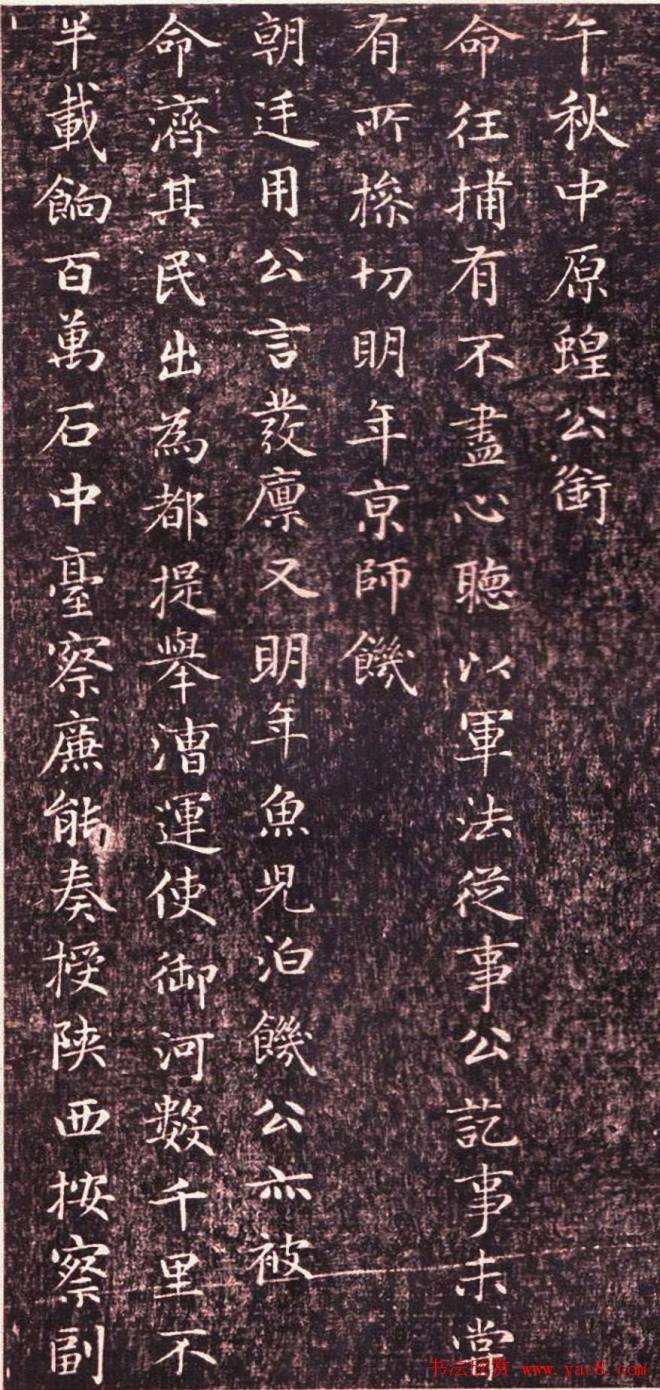 午秋中原蝗公銜
命往捕有不盡心聽以軍法從事公訖事未嘗
有所搽切明年京師饑
朝廷用公言發廪又明年魚児泊饑公亦被
命濟其民出為都提舉漕運使御河數千里不
半載餉百萬石中臺察廉能奏授陕西按察副
书法欣赏 www.yac8.com